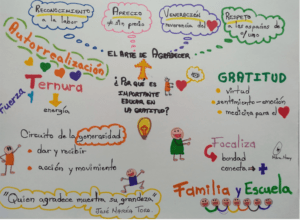 RECONOCIMIENTO
a la labor
APRECIO
GENERACIÓN
RESPETO
a los espacios de
EL ARTE DE AGRADECER
Autorrealización
Ternura
energía
Fuerza
¿POR QUÉ ES
IMPORTANTE
EDUCAR EN
LA GRATITUD?
GRATITUD
• virtud
• sentimiento-emoción
• medicina para el
Circuito de la generosidad
• dar y recibir
• acción y movimiento
Focaliza
bondad
conecta
Familia y Escuela
"Quien agradece muestra su grandeza"
José María Toro